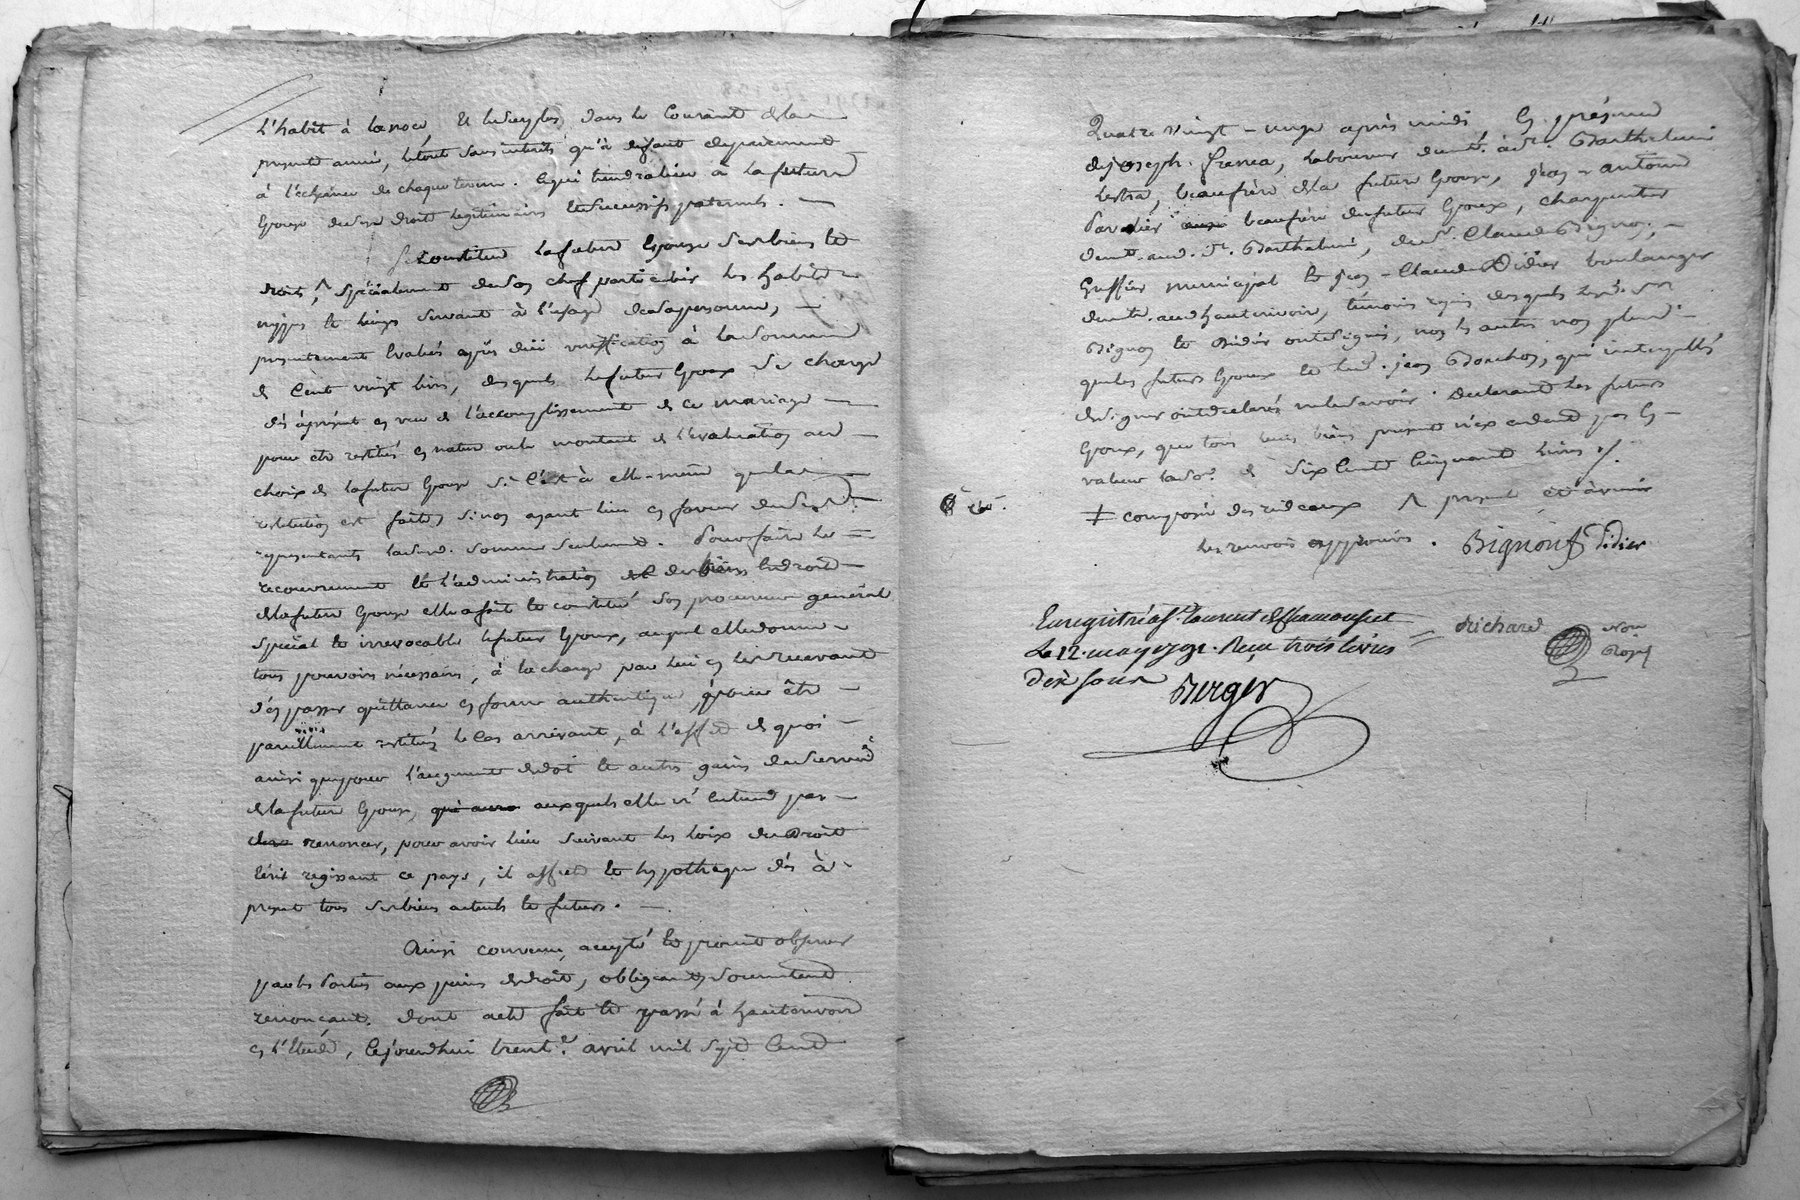 L'habit à la noce, et le surplus dans le courant de la
presente année, le tout sans interêts qu'à defaut de payement
à l'échéance de chaque terme. Ce qui tiendra lieu à la future
Epouse de ses droits legitimaires et successifs paternels. —
Se constitue la future Epouse ses biens et
droits, & spécialement de son chef particulier les habits
nippes et linges servant à l'usage de sa personne, —
presentement Evalués après düe verification à la somme
de Cent vingt livres, desquels le futur Epoux se charge
dès à present en vue de l'accomplissement de ce mariage —
pour être restitués en nature ou le montant de l'évaluation au —
choix de la future Epouse si c'est à elle-même que la
restitution est faite, sinon ayant lieu en faveur de ses
representants lad. somme seulement. Pour faire le =
recouvrement et l'administration de des biens et droits —
de la future Epouse elle a fait et constitué son procureur général
spécial et irrevocable le futur Epoux, auquel elle donne —
tous pouvoirs nécessaires, à la charge par lui en les recevant
d'en passer quittance en forme authentique, pour être —
pareillement restitués le cas arrivant, à l'effet de quoi —
ainsi que pour l'augment de dot et autres gains de survie
de la future Epouse, qui aura auxquels elle n'entend par
renoncer, pour avoir lieu suivant les loix du droit
Ecrit regissant ce pays, il affecte et hypotheque dès à -
present tous ses biens actuels et futurs. —
Ainsi convenu, accepté et promis observer
par les Parties aux peines de droit, obligeant, soumettant
renonçant. Dont acte fait et passé à hauterivoire
en l'Etude, Cejourdhui trente avril mil sept Cent
Quatre vingt - onze après midi En presence
de Joseph , laboureur demt. à St. Barthelemi
Lestra, beaufrère de la future Epouse, Jean - antoine
beaufrère du futur Epoux, charpentier
demt. aud. St. Barthelemi, de Sr. Claude Bignon, —
Greffier municipal et Jean - Claude Didier boulanger
demt. aud. hauterivoire, témoins requis desquels lesd. Srs
Bignon et Didier ont signé, non les autres non plus —
que les futurs Epoux et led. Jean , qui interpellés
de signer ont declarés ne le savoir. Declarant les futurs
Epoux, que tous leurs biens presents n'excedent pas En —
valeur la so. de Six Cent Cinquante livres ./.
≠ composés des rideaux ^ present et à venir
les renvois approuvés. Bignon Gff Didier
Enregistré à St. Laurent de Chamousset
Le 12. may 1791. Reçu trois livres = Richard Nore
dix sous Royal
Berger